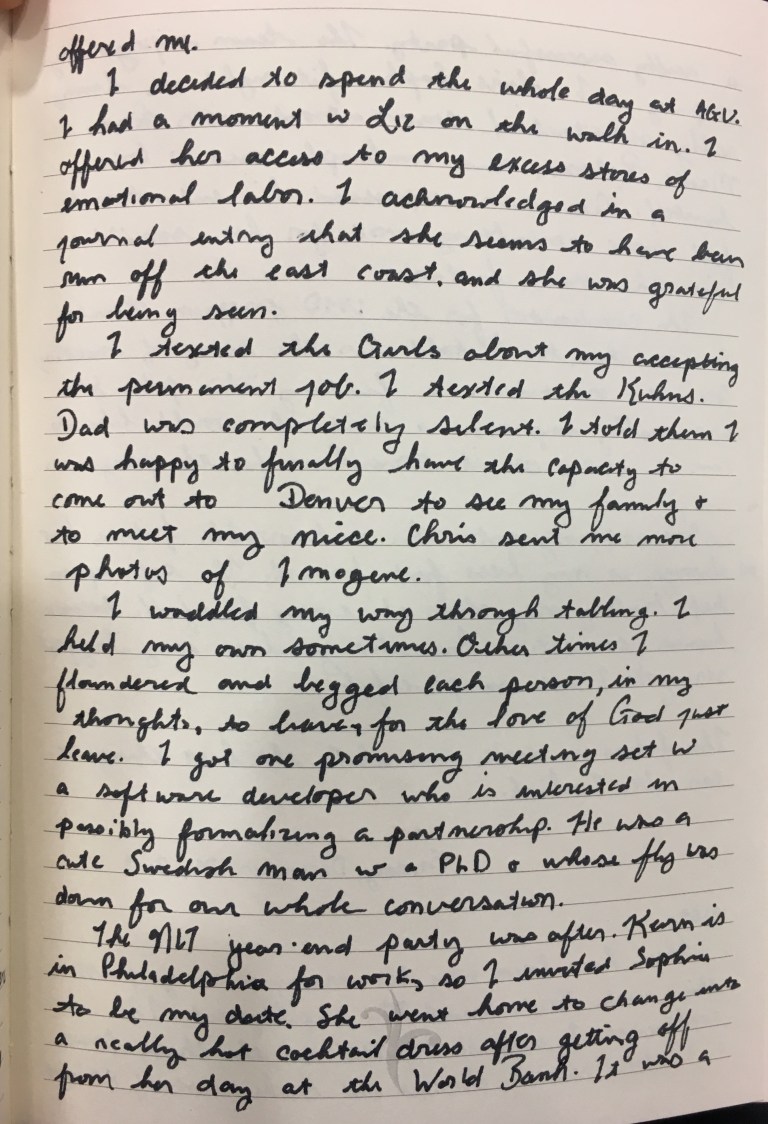 offered me.
I decided to spend the whole day at AGU.
I had a moment w Liz on the walk in. I
offered her access to my excess stores of
emotional labor. I acknowledged in a
journal entry that she seems to have been
run off the east coast, and she was grateful
for being seen.
I texted the Girls about my accepting
the permanent job. I texted the Kuhns.
Dad was completely silent. I told them I
was happy to finally have the capacity to
come out to Denver to see my family +
to meet my niece. Chris sent me more
photos of Imogene.
I waddled my way through tabling. I
held my own sometimes. Other times I
floundered and begged each person, in my
thoughts, to leave, for the love of God just
leave. I got one promising meeting set w
a software developer who is interested in
possibly formalizing a partnership. He was a
cute Swedish man w a PhD & whose fly was
down for our whole conversation.
The year-end party was after. is
in Philadelphia for work, so I invited Sophia
to be my date. She went home to change into
a really hot cocktail dress after getting off
from her day at the World Bank. It was a